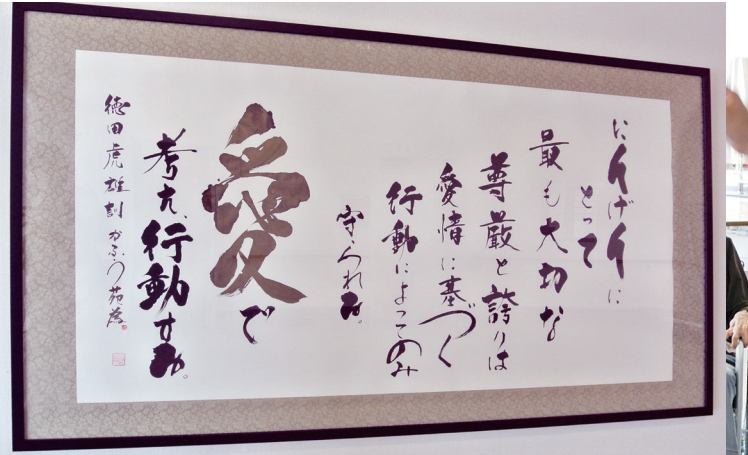 にんげんに
とって
最も大切な
尊厳と誇りは
愛情に基づく
行動によってのみ
守られる。
愛で
考え、行動する。
徳田虎雄訓